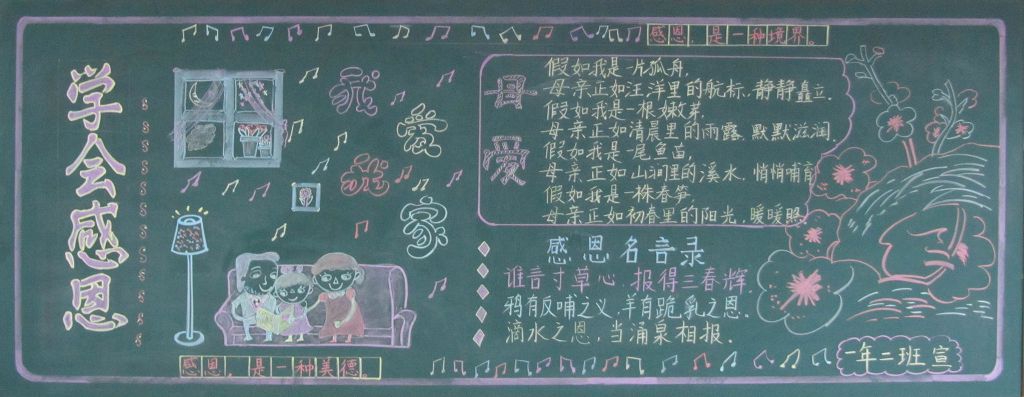 学会感恩
感恩，是一种境界。
我爱我家
感恩，是一种美德。
母爱
假如我是一片孤舟，
母亲正如汪洋里的航标，静静矗立，
假如我是一根嫩芽，
母亲正如清晨里的雨露，默默滋润，
假如我是一尾鱼苗，
母亲正如山涧里的溪水，悄悄哺育
假如我是一株春笋，
母亲正如初春里的阳光，暖暖照
感恩名言录
谁言寸草心，报得三春辉。
鸦有反哺之义，羊有跪乳之恩。
滴水之恩，当涌泉相报。
一年二班宣